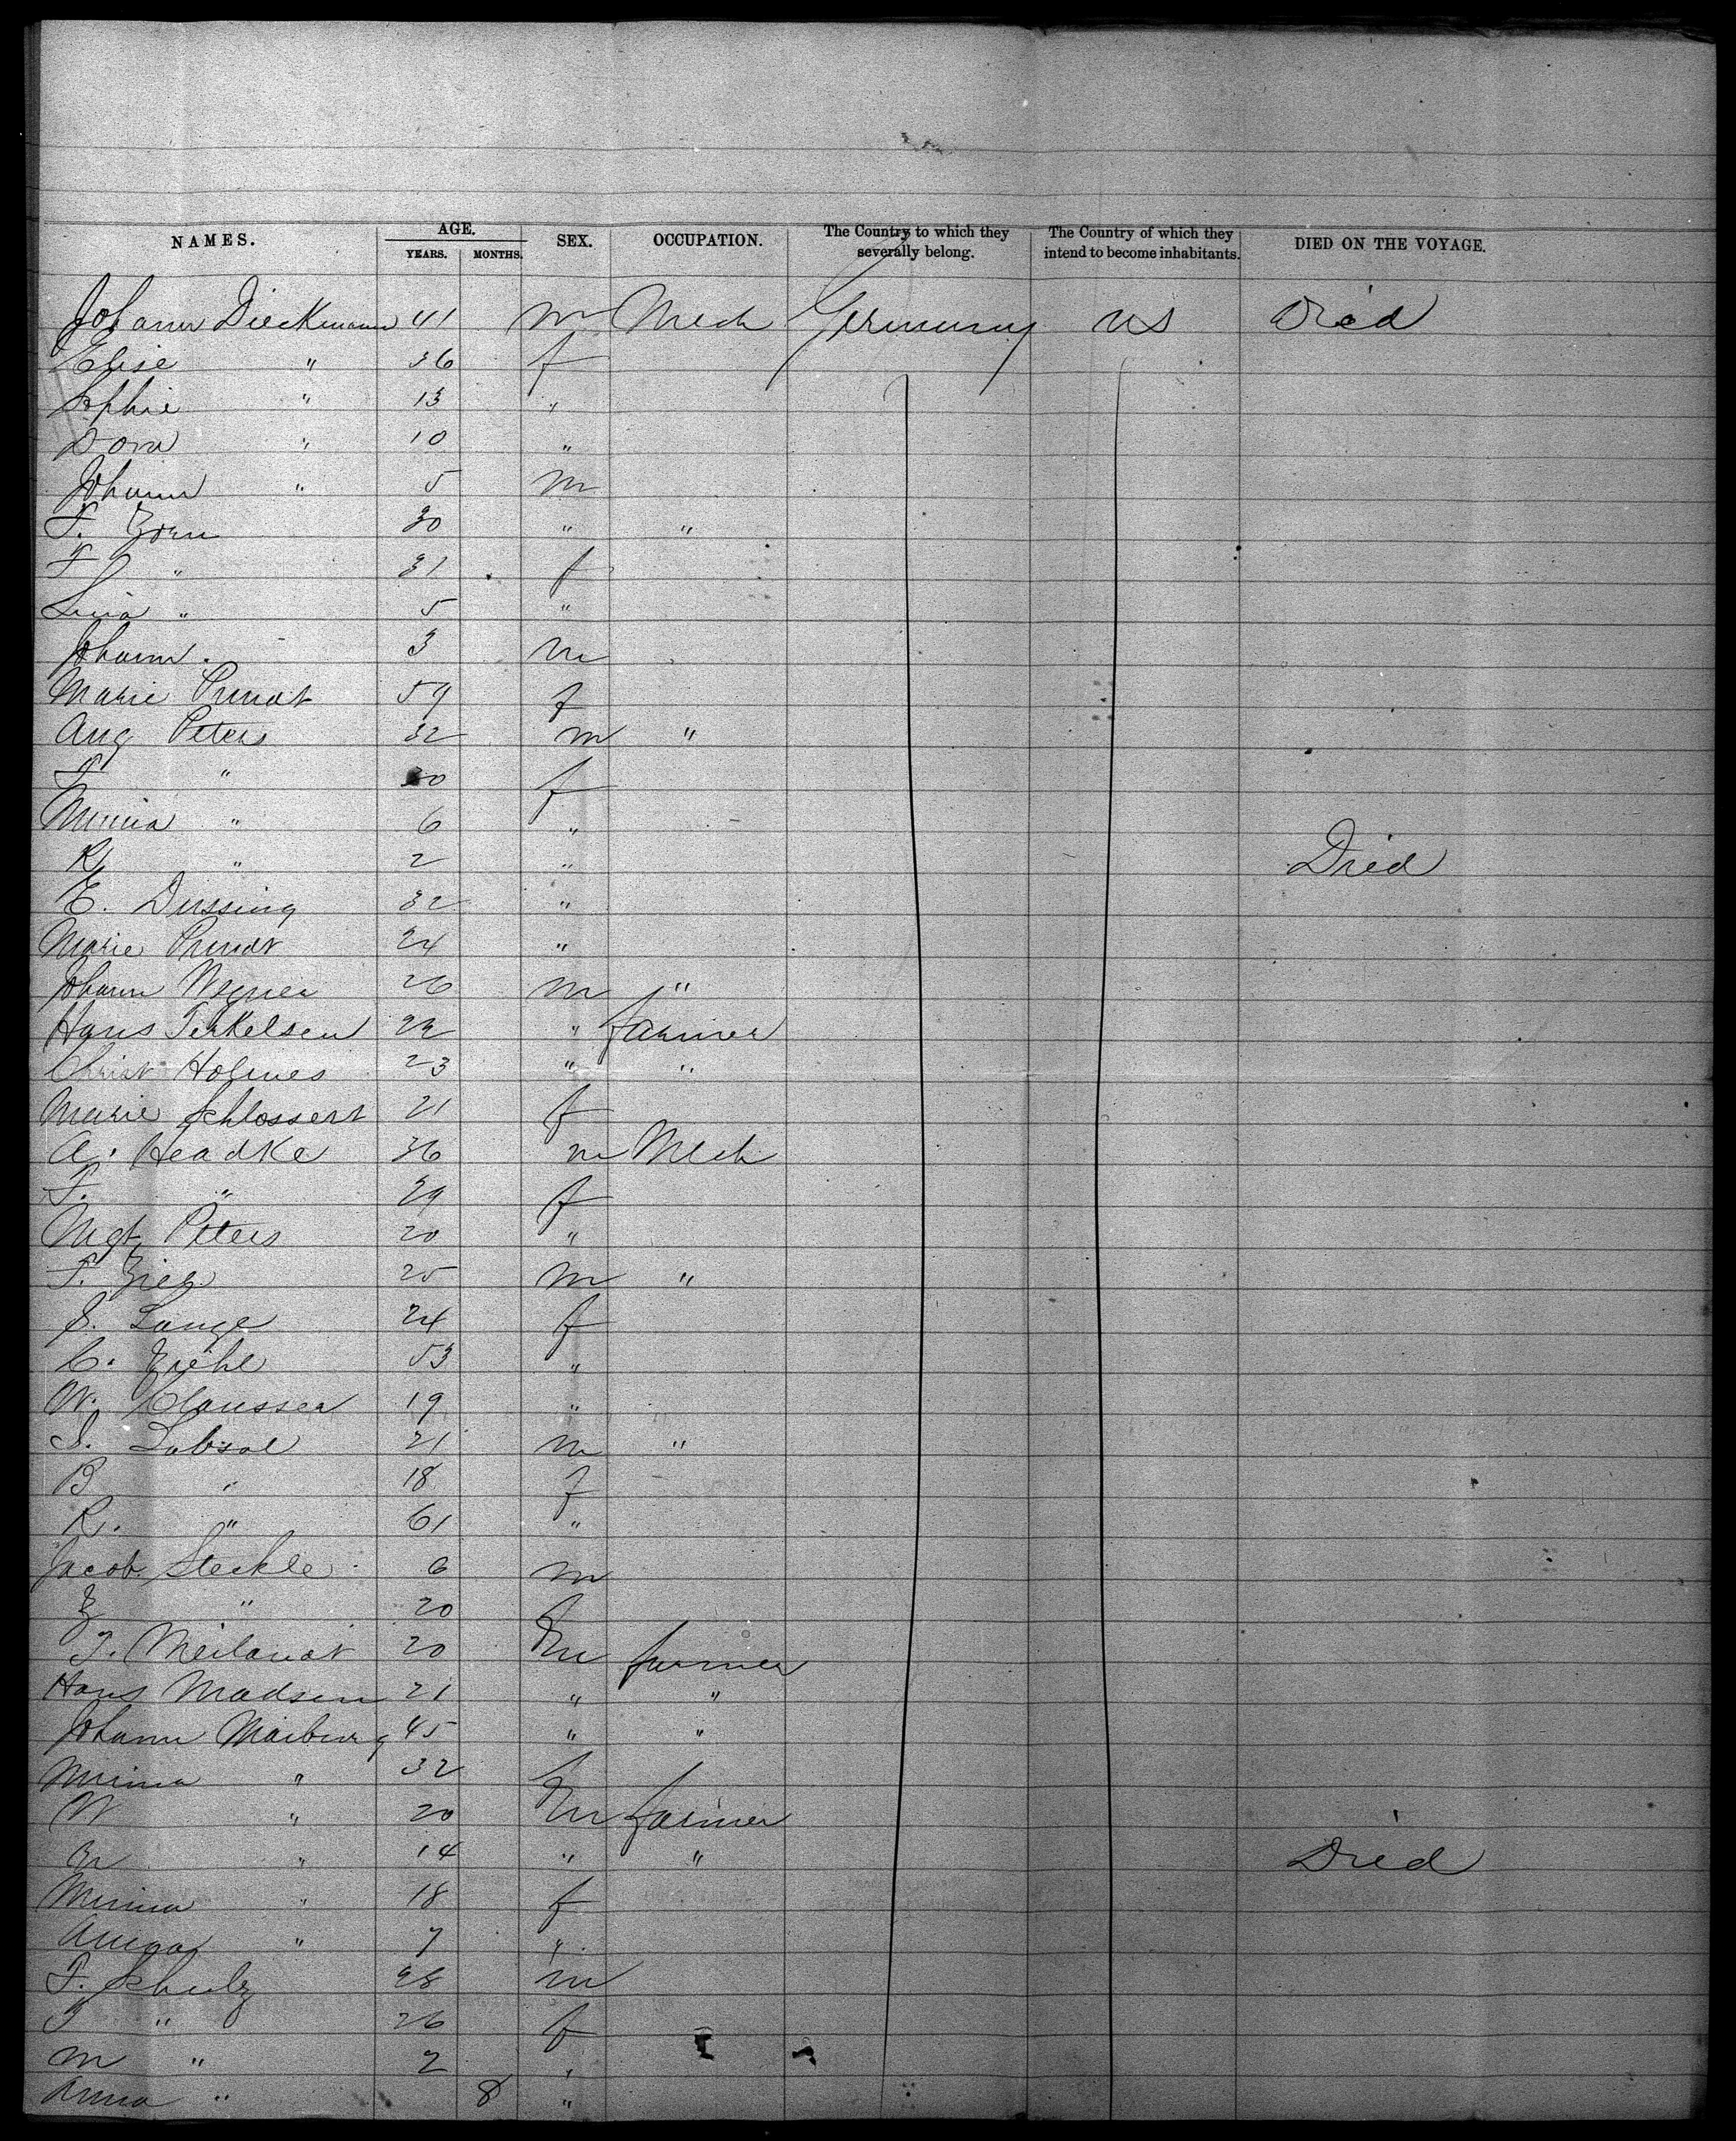 NAMES. AGE. SEX. OCCUPATION. The Country to which they severally belong. The Country of which they intend to become inhabitants. DIED ON THE VOYAGE.
YEARS. MONTHS.
Johann Dieckmann 41 m Mech Germany US Died
Elise " 36 f
Sophie " 13 "
Dora " 10 "
Johann " 5 m
F. Zorn 30 " "
F " 31 f
Lina " 5 "
Johann . 3 m
Marie Prundt 59 f
Aug Peters 32 m "
F " 30 f
Minna " 6 "
R " 2 " Died
E. Dussing 32 "
Marie Prundt 24 "
Johann Wegner 26 m "
Hans Terkelsen 22 " farmer
Christ Holmes 23 " "
Marie Schlossert 21 f
A. Headke 36 m Mech
F. " 29 f
Mgt Peters 20 "
F. 25 m "
S. Lange 24 f
C. Ziehl 53 "
W. Claussen 19 "
J. Labsal 21 m "
B " 18 f
R. " 61 "
Jacob Steckle 6 m
Z " 20 f
J. Meilandt 20 m farmer
Hans Madsen 21 " "
Johann Maiburg 45 " "
Minna " 32 f
W " 20 m farmer
" 14 " " Died
Minna " 18 f
" 7 "
F. Schulz 28 m
F " 26 f
M " 2 "
Anna " 8 "